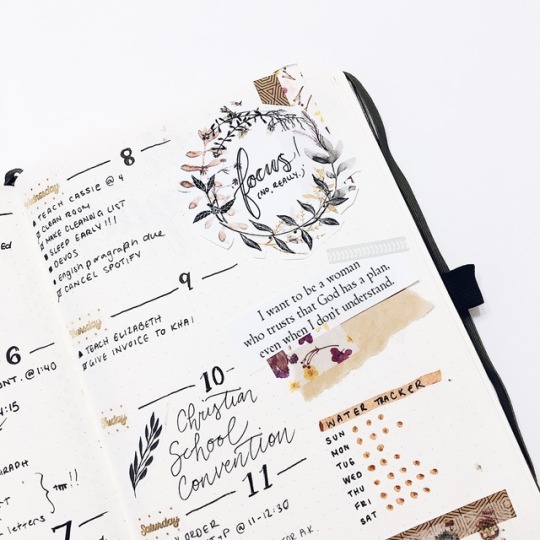 Ed
6
NT. @ 1:40
N:15
RADH
!!
letters
7
8
Wednesday
TEACH CASSIE @ 4
CLEAN ROOM
MAKE CLEANING LIST
SLEEP EARLY!!!
DEVOS
English paragraph due
CANCEL SPOTIFY
9
Thursday
TEACH ELIZABETH
GIVE INVOICE TO KHAI
10
Friday
Christian
School
Convention
11
Saturday
ORDER
@ 11-12:30
FOR A.K.
focus!
(NO, REALLY.)
I want to be a woman
who trusts that God has a plan,
even when I don't understand.
WATER TRACKER
SUN
MON
TUE
WED
THU
FRI
SAT